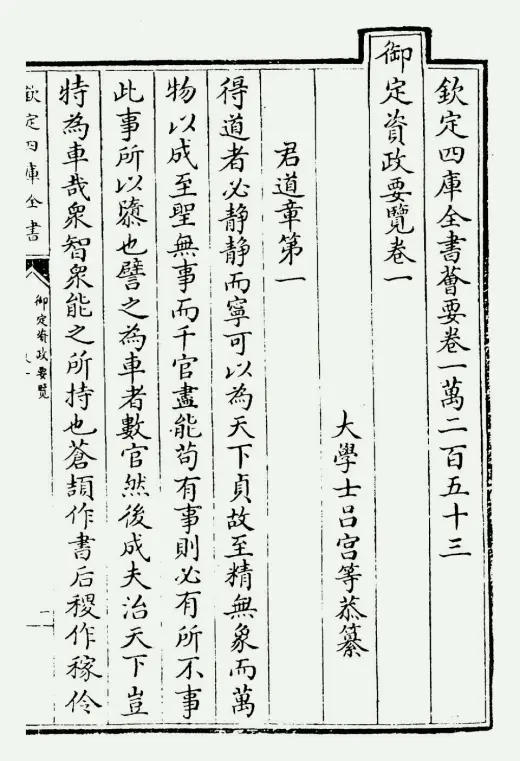 欽定四庫全書薈要卷一萬二百五十三
御定資政要覽卷一
大學士吕宫等恭纂
君道章第一
得道者必静静而寧可以為天下貞故至精無象而萬
物以成至聖無事而千官盡能苟有事則必有所不事
此事所以隳也譬之為車者數官然後成夫治天下豈
特為車哉衆智衆能之所持也蒼頡作書后稷作稼伶
欽定四庫全書
御定資政要覽